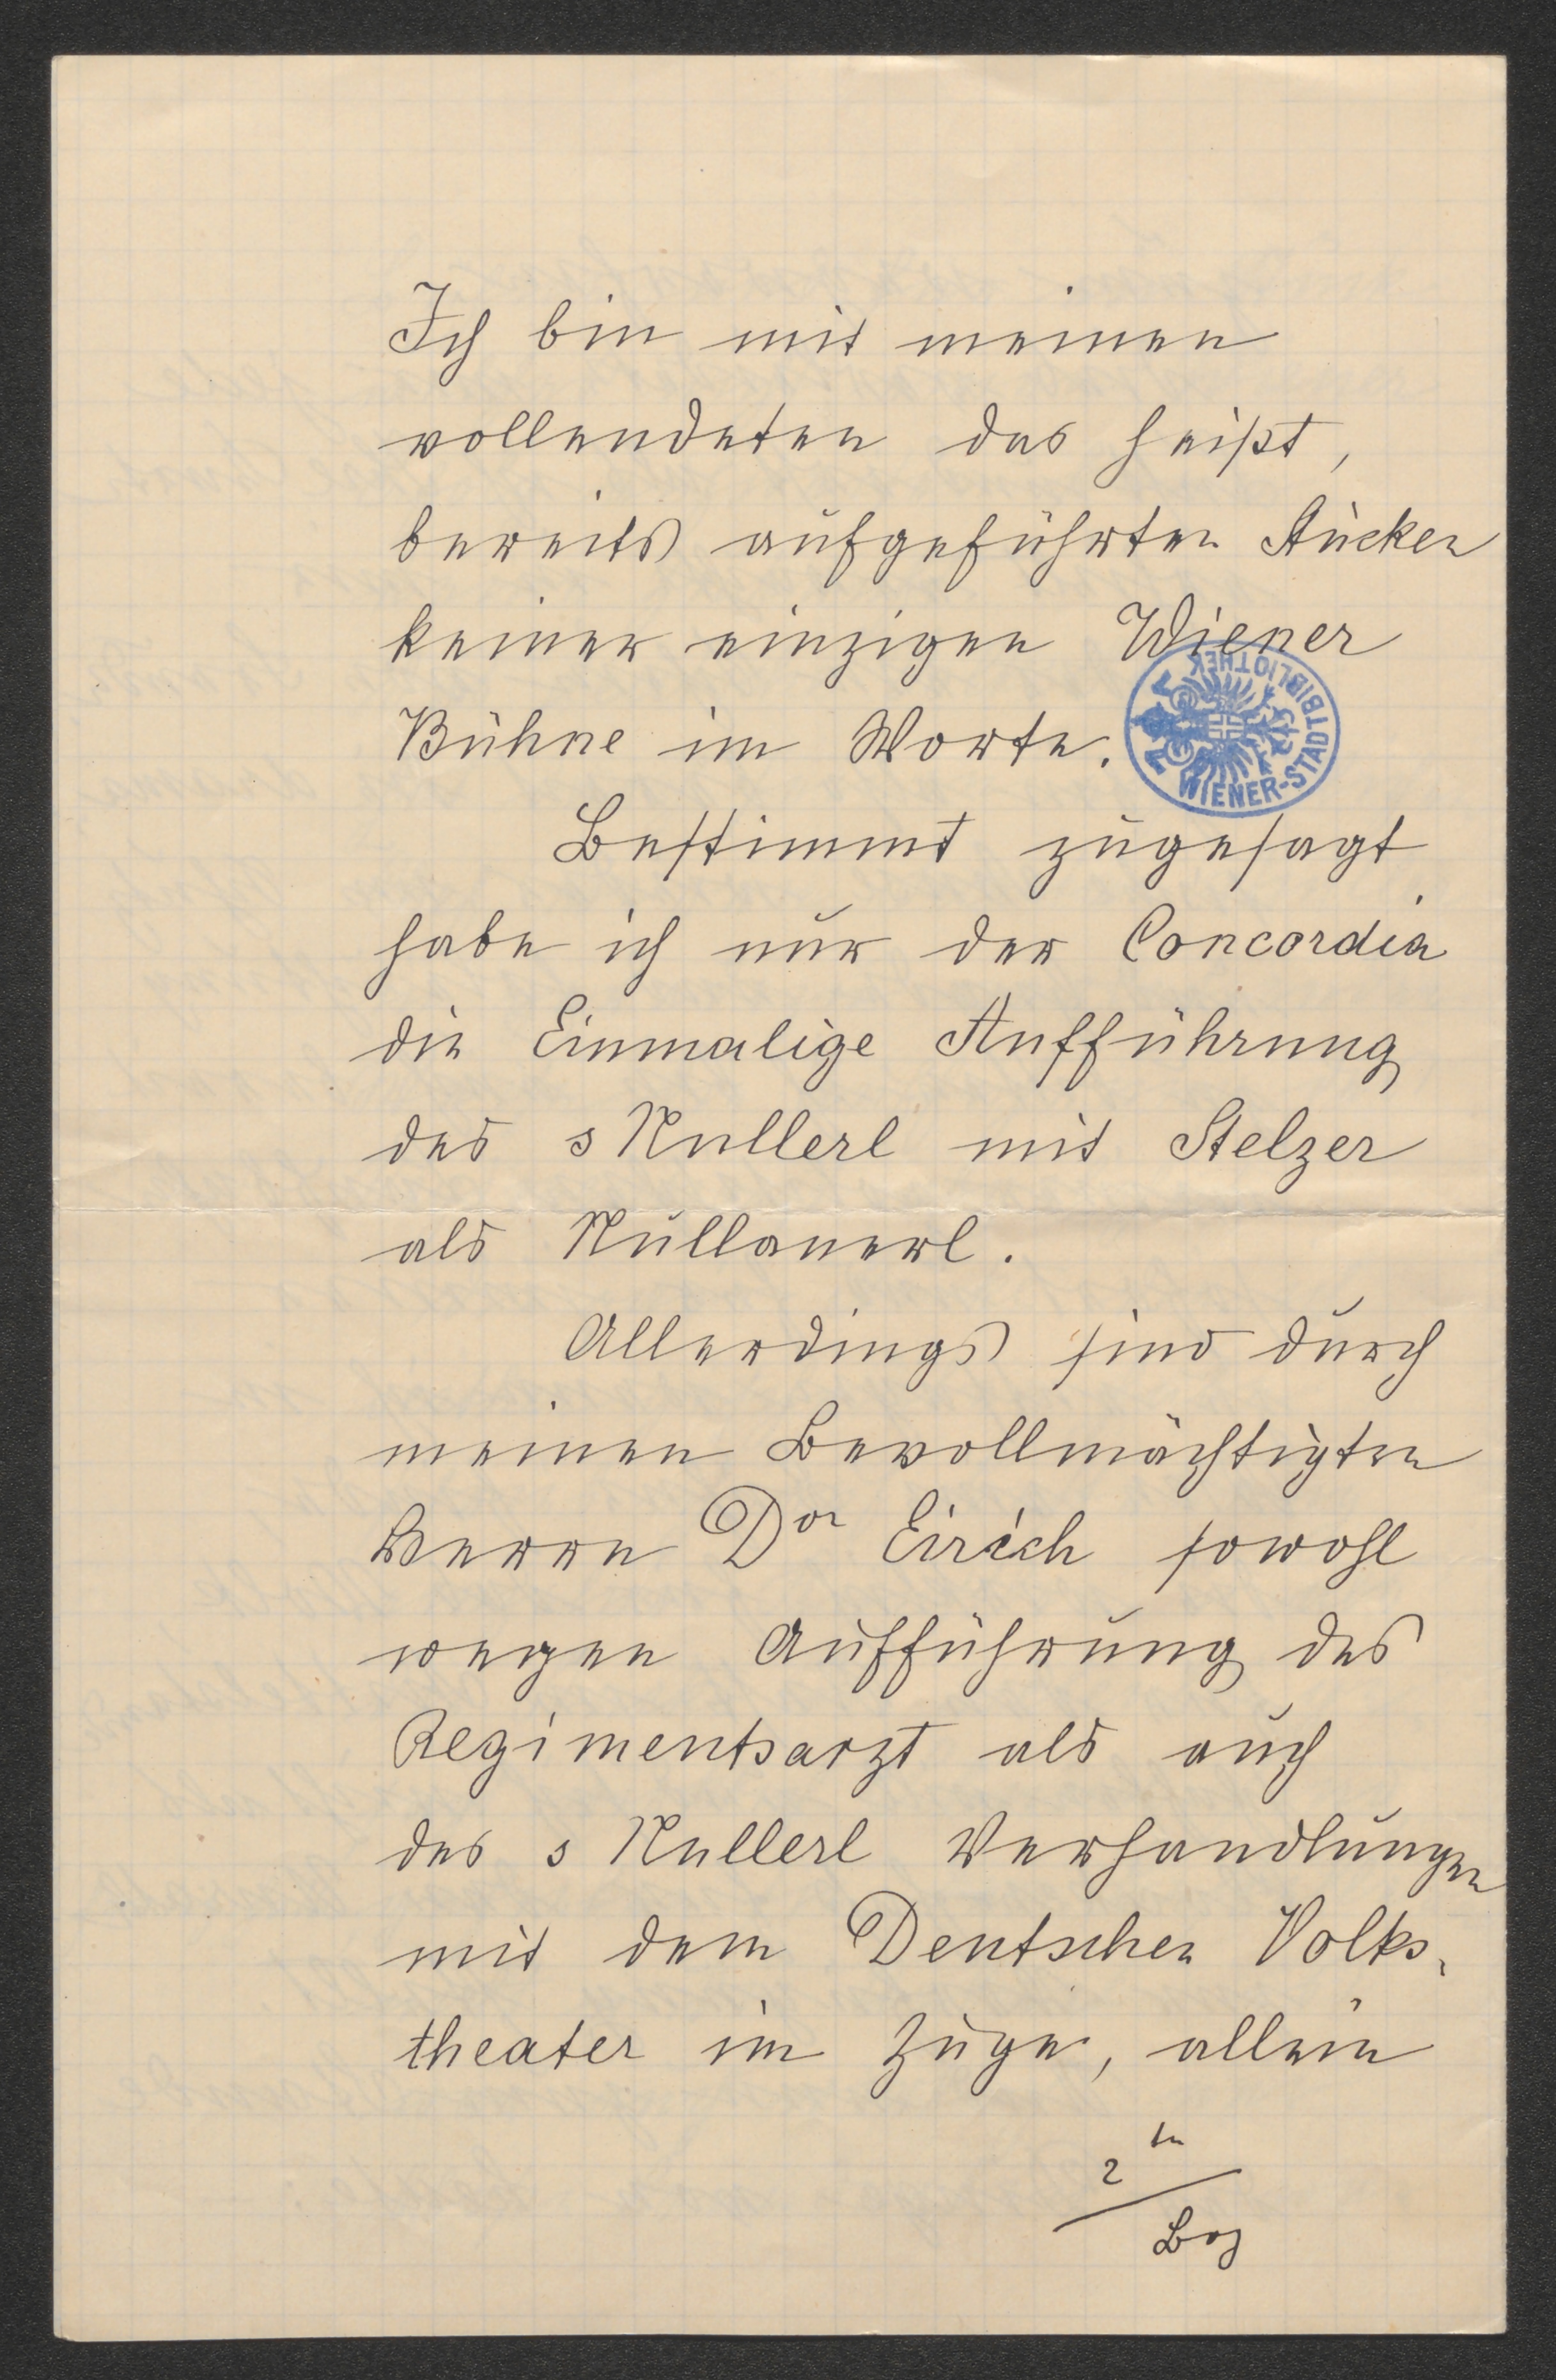 Ich bin mit meinen
vollendeten das heißt,
bereits aufgeführten Stücken
keiner einzigen Wiener
Bühne im Worte.
WIENER-STADTBIBLIOTHEK
Bestimmt zugesagt
habe ich nur der Concordia
die Einmalige Aufführung
des s Nullerl mit Stelzer
als Nullanerl.
Allerdings sind durch
meinen Bevollmächtigten
Herrn Dor Eirich sowohl
wegen Aufführung des
Regimentsarzt als auch
des s Nullerl Verhandlungen
mit dem Deutschen Volks-
theater im Zuge, allein
2tn
Bog